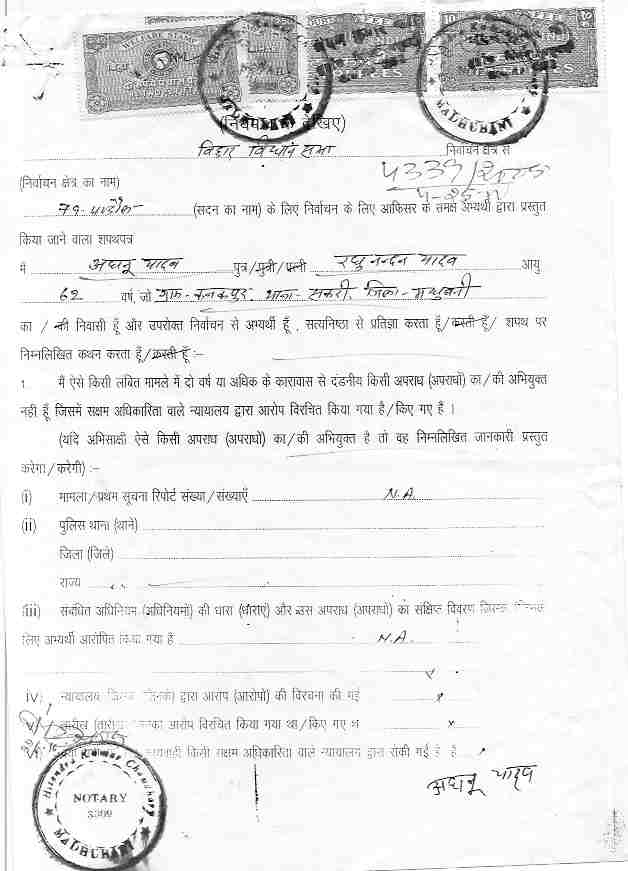 WELFARE STAMP
MADHUBANI
MADHUBANI
देखिए)
बिहार विधान सभा निर्वाचन क्षेत्र से
(निर्वाचन क्षेत्र का नाम)
(सदन का नाम) के लिए निर्वाचन के लिए आफिसर के समक्ष अभ्यर्थी द्वारा प्रस्तुत
किया जाने वाला शपथपत्र
में अघनू यादव पुत्र/पुत्री/पत्नी रघुनन्दन यादव आयु
62 वर्ष, जो ग्राम- कनकपुर, थाना- सकरी, जिला- मधुबनी
का / की निवासी हूँ और उपरोक्त निर्वाचन से अभ्यर्थी हूँ , सत्यनिष्ठा से प्रतिज्ञा करता हूँ/करती हूँ/ शपथ पर
निम्नलिखित कथन करता हूँ/करती हूँ :-
1. मैं ऐसे किसी लंबित मामले में दो वर्ष या अधिक के कारावास से दंडनीय किसी अपराध (अपराधों) का/की अभियुक्त
नहीं हूँ जिसमें सक्षम अधिकारिता वाले न्यायालय द्वारा आरोप विरचित किया गया है/किए गए हैं ।
(यदि अभिसाक्षी ऐसे किसी अपराध (अपराधों) का/की अभियुक्त है तो वह निम्नलिखित जानकारी प्रस्तुत
करेगा/करेगी) :-
(i) मामला/प्रथम सूचना रिपोर्ट संख्या/संख्याएँ N.A.
(ii) पुलिस थाना (थाने)
जिला (जिले)
राज्य
(iii) संबंधित अधिनियम (अधिनियमों) की धारा (धाराएं) और उस अपराध (अपराधों) का संक्षिप्त विवरण
लिए अभ्यर्थी आरोपित किया गया है N.A.
iv) न्यायालय द्वारा आरोप (आरोपों) की विरचना की गई
आरोप विरचित किया गया था/किए गए
किसी सक्षम अधिकारिता वाले न्यायालय द्वारा रोकी गई है
अघनू यादव
Hitendra Kumar Chaudhary
NOTARY
MADHUBANI